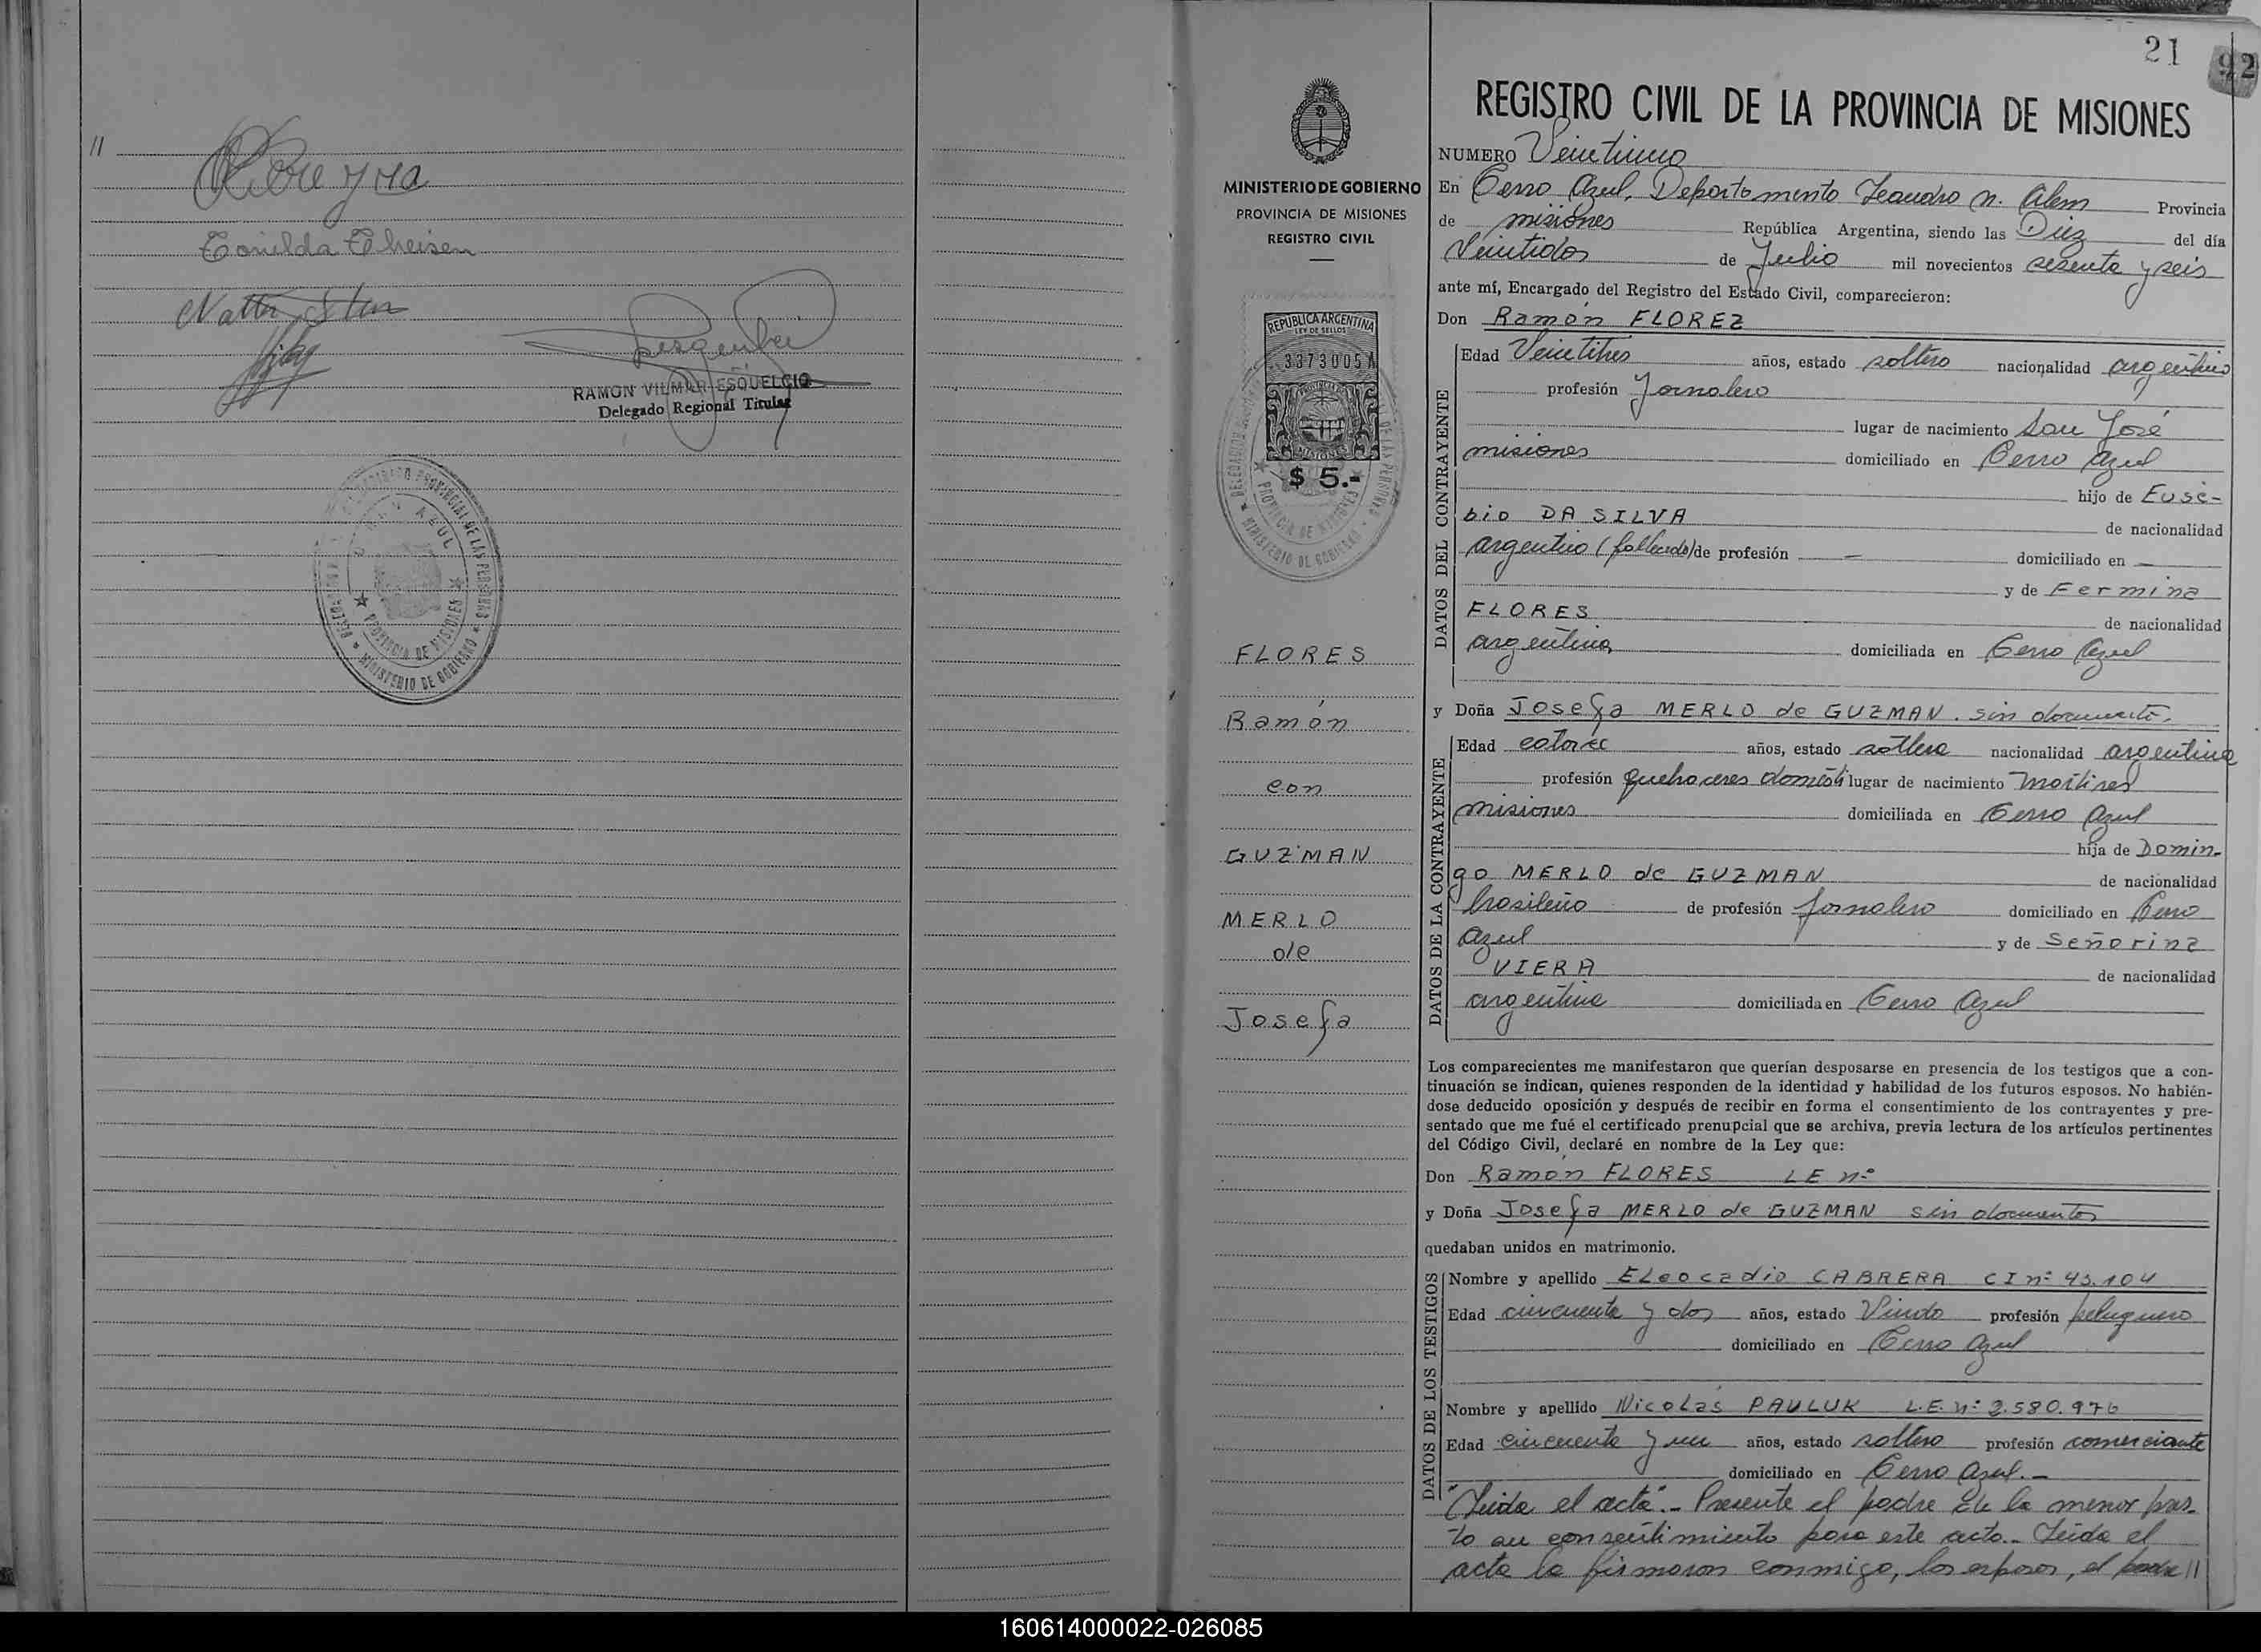 //
Pereyra
Tonilda Theisen
RAMON VILMAR ESQUELCIO
Delegado Regional Titular
REGISTRO PROVINCIAL DE LAS PERSONAS
CERRO AZUL
PROVINCIA DE MISIONES
MINISTERIO DE GOBIERNO
21
92
MINISTERIO DE GOBIERNO
PROVINCIA DE MISIONES
REGISTRO CIVIL
REPUBLICA ARGENTINA
LEY DE SELLOS
3373005 A
MISIONES
$ 5.-
DE LAS PERSONAS
PROVINCIA DE MISIONES
MINISTERIO DE GOBIERNO
FLORES
Ramón
con
GUZMAN
MERLO
de
Josefa
REGISTRO CIVIL DE LA PROVINCIA DE MISIONES
NUMERO Veintiuno
En Cerro Azul, Departamento Leandro N. Alem Provincia
de misiones República Argentina, siendo las Diez del día
Veintidos de Julio mil novecientos sesenta y seis
ante mí, Encargado del Registro del Estado Civil, comparecieron:
Don Ramón FLOREZ
DATOS DEL CONTRAYENTE
Edad Veintitres años, estado soltero nacionalidad argentino
profesión Jornalero
lugar de nacimiento San José
misiones domiciliado en Cerro Azul
hijo de Euse-
bio DA SILVA de nacionalidad
argentino (fallecido) de profesión — domiciliado en —
y de Fermina
FLORES de nacionalidad
argentina domiciliada en Cerro Azul
y Doña Josefa MERLO de GUZMAN. sin documento.
DATOS DE LA CONTRAYENTE
Edad catorce años, estado soltera nacionalidad argentina
profesión quehaceres domésti lugar de nacimiento Martires
misiones domiciliada en Cerro Azul
hija de Domin-
go MERLO de GUZMAN de nacionalidad
brasileño de profesión jornalero domiciliado en Cerro
Azul y de Señorina
VIERA de nacionalidad
argentina domiciliada en Cerro Azul
Los comparecientes me manifestaron que querían desposarse en presencia de los testigos que a con-
tinuación se indican, quienes responden de la identidad y habilidad de los futuros esposos. No habién-
dose deducido oposición y después de recibir en forma el consentimiento de los contrayentes y pre-
sentado que me fué el certificado prenupcial que se archiva, previa lectura de los artículos pertinentes
del Código Civil, declaré en nombre de la Ley que:
Don Ramón FLORES LE nº
y Doña Josefa MERLO de GUZMAN sin documentos
quedaban unidos en matrimonio.
DATOS DE LOS TESTIGOS
Nombre y apellido ELeocadio CABRERA CI nº 43.104
Edad cincuenta y dos años, estado Viudo profesión peluquero
domiciliado en Cerro Azul
Nombre y apellido Nicolás PAULUK L.E. nº 2.580.976
Edad cincuenta y un años, estado soltero profesión comerciante
domiciliado en Cerro Azul.-
"Leida el acta".- Presente el padre de la menor pres-
to su consentimiento para este acto.- Leida el
acta la firmaron conmigo, los esposos, el padre //
160614000022-026085